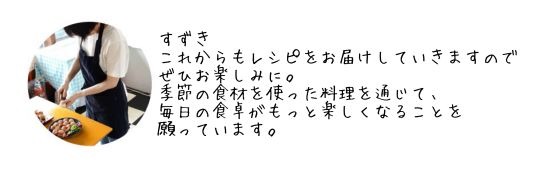 すずき
これからもレシピをお届けしていきますので
ぜひお楽しみに。
季節の食材を使った料理を通じて、
毎日の食卓がもっと楽しくなることを
願っています。